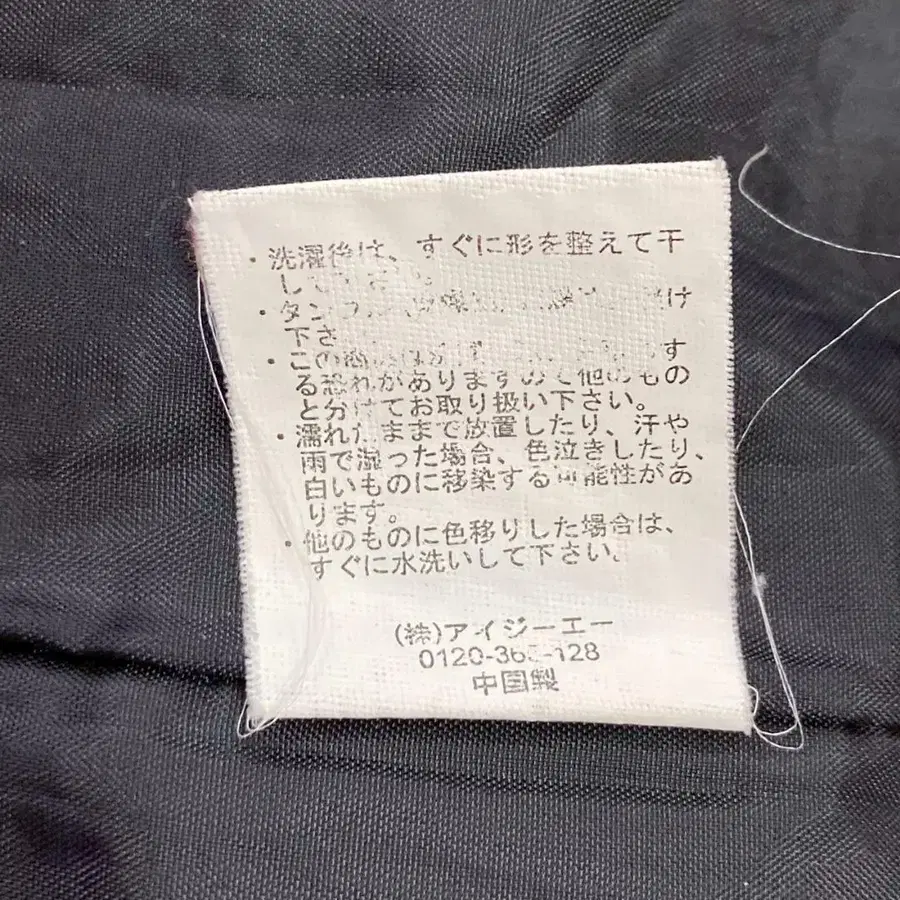 ・洗濯後は、すぐに形を整えて干
して
・タン
下さ
・この す
る恐れがありますので他のもの
と分けてお取り扱い下さい。
・濡れたままで放置したり、汗や
雨で湿った場合、色泣きしたり、
白いものに移染する可能性があ
ります。
・他のものに色移りした場合は、
すぐに水洗いして下さい。
(株)アイジーエー
0120-36 -128
中国製